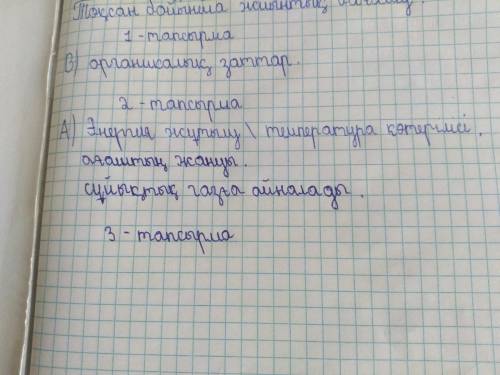 Тоқсан бойынша жиынтық
1-тапсырма
В) органикалық заттар.
2 - тапсырма
А) Энергия жұтылу \ температура көтерілсі.
ағаштың жануы.
сұйықтық газға айналады.
3 - тапсырма